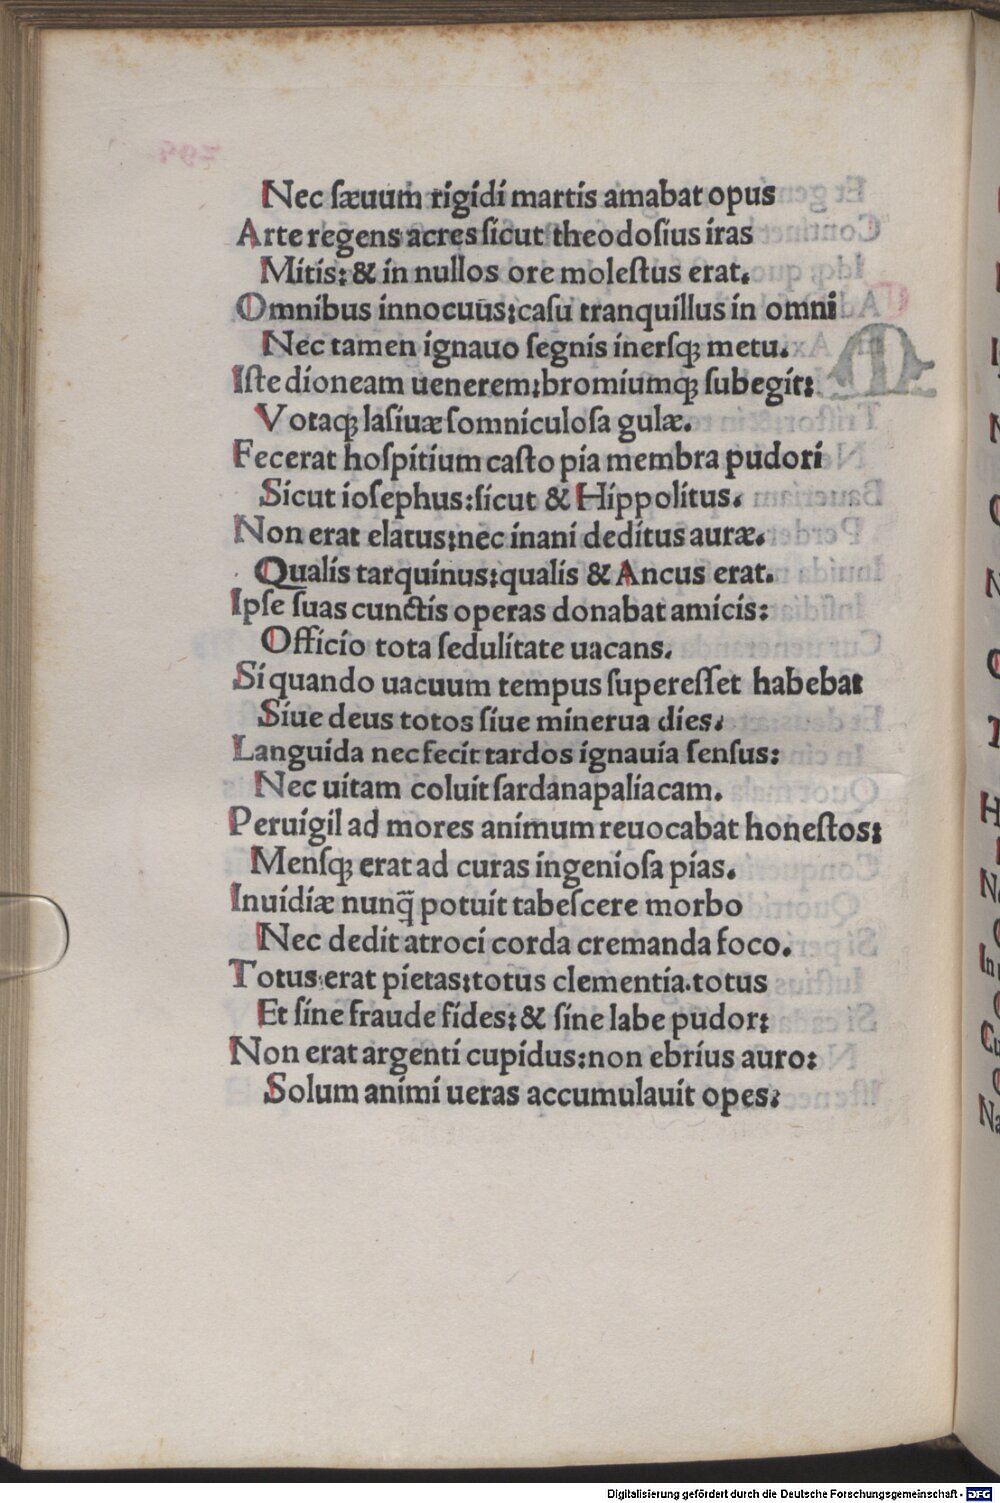 Nec ſæuum rigidi martis amabat opus
Arte regens acres ſicut theodoſius iras
Mitis: & in nullos ore moleſtus erat.
Omnibus innocuus: caſu tranquillus in omni
Nec tamen ignauo ſegnis inerſqꝫ metu.
Iſte dioneam uenerem: bromiumqꝫ ſubegit:
Votaqꝫ laſiuæ ſomniculoſa gulæ.
Fecerat hoſpitium caſto pia membra pudori
Sicut ioſephus: ſicut & Hippolitus.
Non erat elatus: nec inani deditus auræ.
Qualis tarquinus: qualis & Ancus erat.
Ipſe ſuas cunctis operas donabat amicis:
Officio tota ſedulitate uacans.
Si quando uacuum tempus ſupereſſet habebat
Siue deus totos ſiue minerua dies.
Languida nec fecit tardos ignauia ſenſus:
Nec uitam coluit ſardanapaliacam.
Peruigil ad mores animum reuocabat honeſtos:
Menſqꝫ erat ad curas ingenioſa pias.
Inuidiæ nunq̄ potuit tabeſcere morbo
Nec dedit atroci corda cremanda foco.
Totus erat pietas: totus clementia. totus
Et ſine fraude fides: & ſine labe pudor:
Non erat argenti cupidus: non ebrius auro:
Solum animi ueras accumulauit opes.
Digitalisierung gefördert durch die Deutsche Forschungsgemeinschaft - DFG